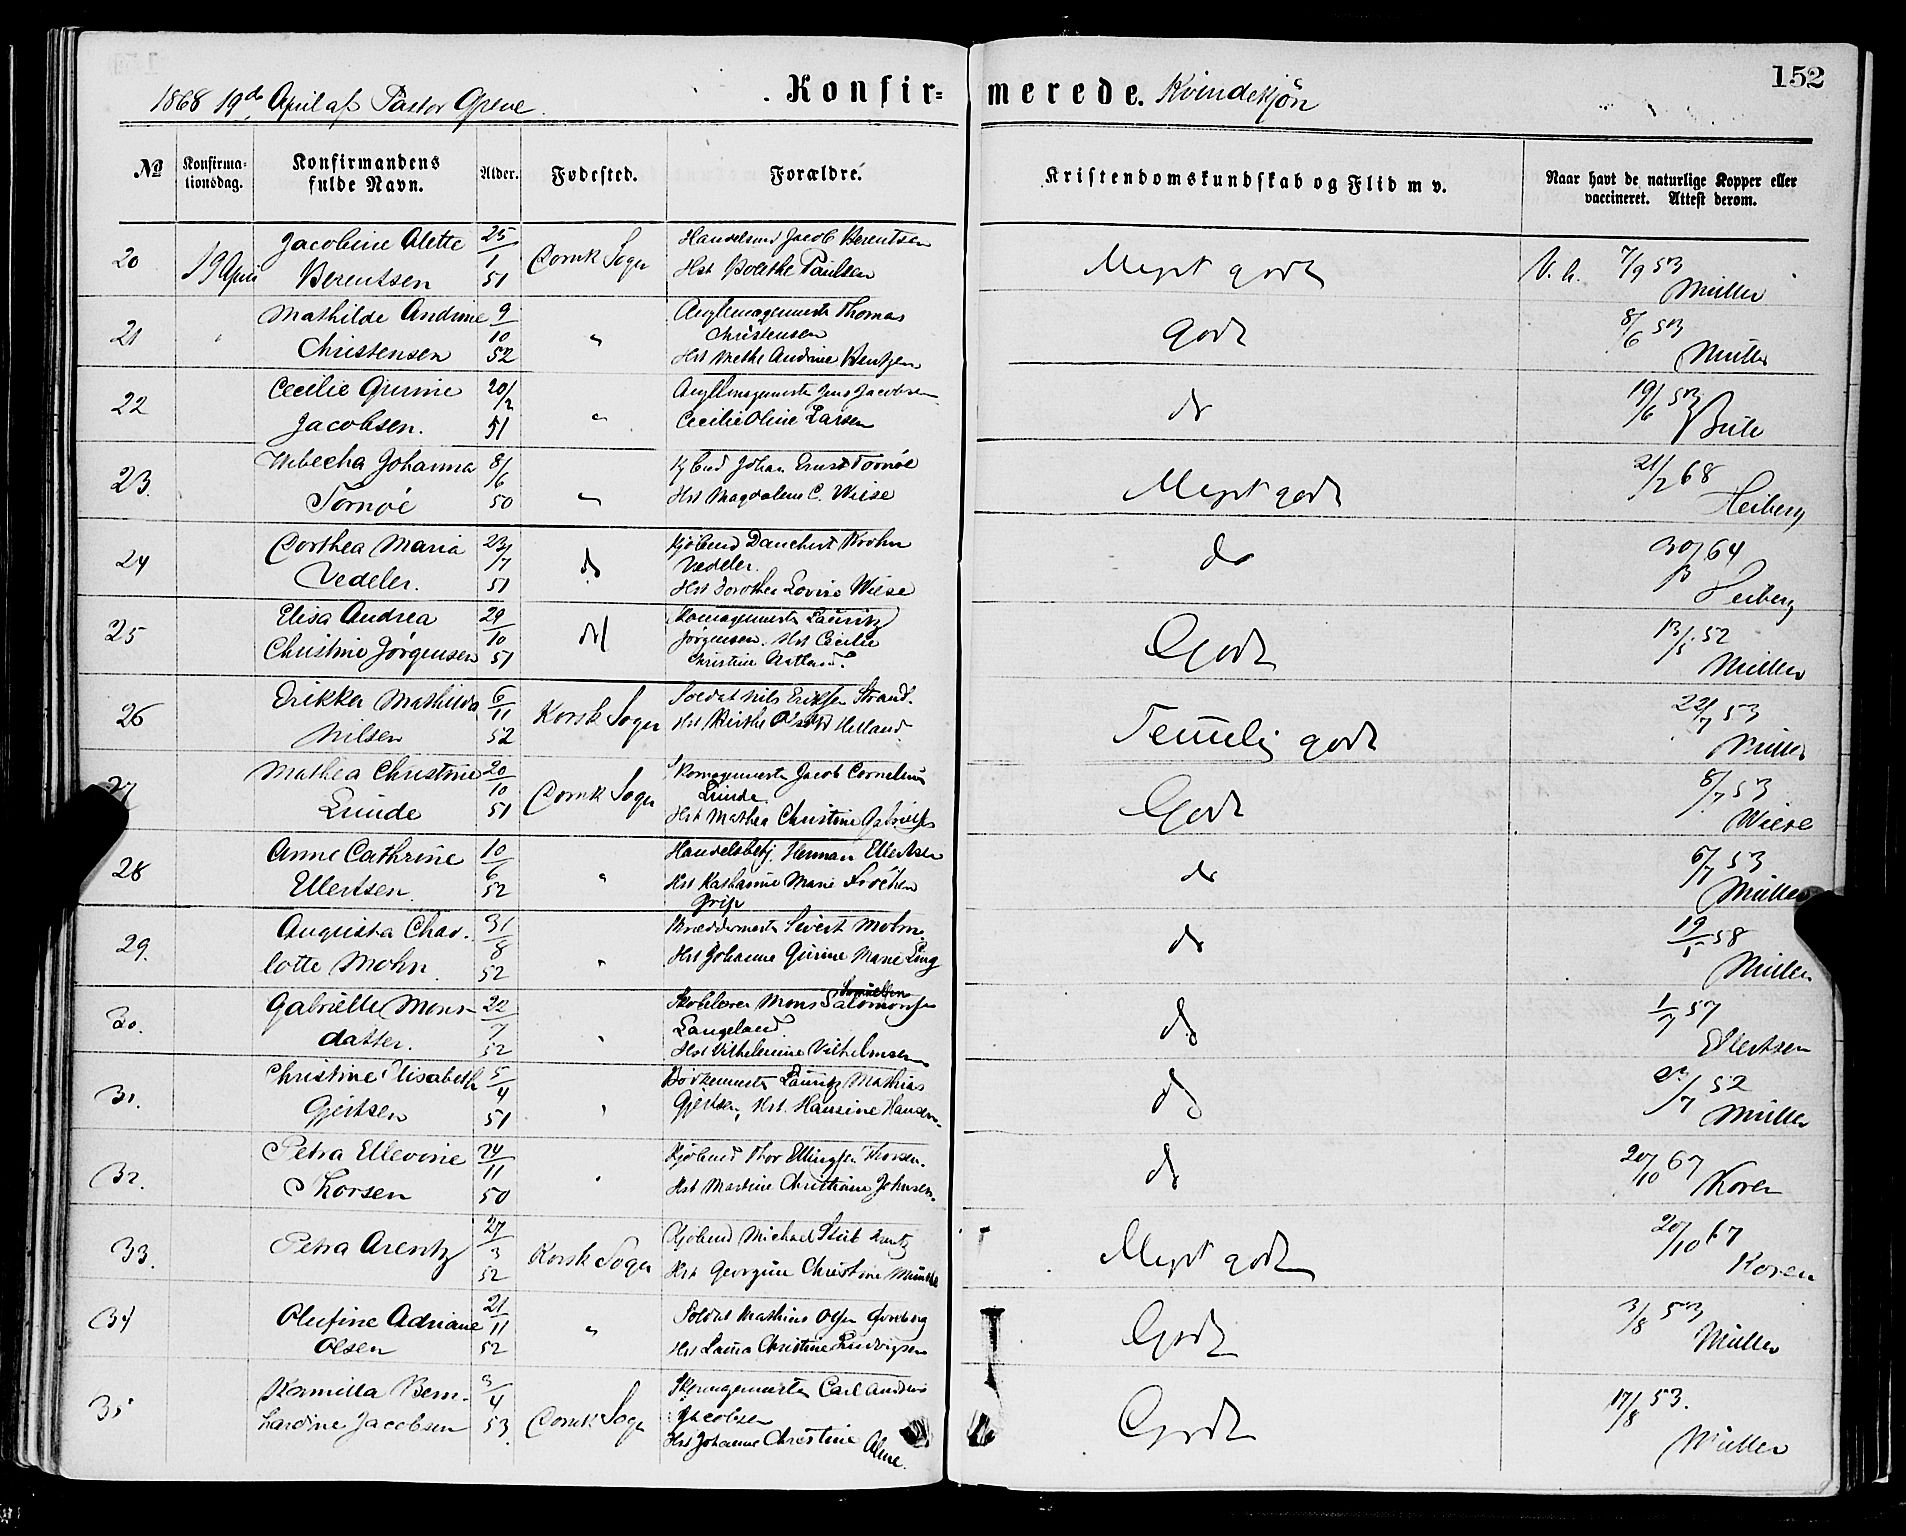 152
1868 19de April af Pastor Greve. Konfir= merede. Kvindekjön
No Konfirma- tionsdag. Konfirmandens fulde Navn. Alder. Fødested. Forældre. Kristendomskundskab og Flid m v. Naar havt de naturlige Kopper eller vaccineret. Attest derom.
20 19 April Jacobine Alette 25/1 Domk Sogn Jacob Berentsen Meget godt V. a. 7/9 53
Berentsen 51 Hst Paulsen Müller
21 Mathilde Andrine 9/10 " Thomas godt 8/6 53
Christensen 52 Christensen Müller
Hst Methe Andrine Bentzen
22 Cecilie Gurine 20/2 " Jens Jacobsen do 19/6 53
Jacobsen. 51 Cecilie Oline Larsen
23. Wibecha Johanna 8/6 " Johan Ernst Tornøe Meget godt 21/2 68
Tornøe 50 Hst Magdalena C. Wiese Heiberg
24 Dorthea Maria 23/7 do Kjöbmd Danchert Krohn do 30/ 64
Vedeler. 51 Vedeler. Heiberg
Hst Dorothea Lovise Wiese
25 Elisa Andrea 29/10 do Skomagermester Lauritz Godt 13/ 52
Christine Jørgensen 51 Jørgensen. Hst Cecilie Müller
Christine
26 Erikka Mathilda 6/11 Korsk Sogn Soldat Nils Eriksen Strand. Temmelig godt 22/7 53
Nilsen 52 Hst Birthe Helland Müller
27 Mathea Christine 20/10 Domk Sogn Skomagermester Jacob Cornelius Godt 8/7 53
Lunde 51 Lunde Wiese
Hst Mathea Christine
28 Anne Cathrine 10/6 " Handelsbetj. Herman Ellertsen do 6/7 53
Ellertsen. 52 Hst Kathrine Marie Müller
Grip
29. Augusta Char- 31/8 " Skræddermester Sivert Mohn do 19/ 58
lotte Mohn 52 Hst Johanne Gurine Marie Ling Müller
30. Gabrielle Mons- 22/7 " Skolelærer Mons Salomonsen Samuelsen do 1/7 57
datter. 52 Langeland Ellertsen
Hst Vilhelmine Vilhelmsen
31. Christine Elisabeth 5/4 " Bødkermester Lauritz Mathias do /7 52
Gjertsen 51 Gjertsen, Hst. Hansine Hansen. Müller
32. Petra Ellevine 24/11 " Kjöbmd Thor Ellingsen Thorsen. do 20/10 67
Thorsen 50 Hst Martine Christiane Johnsen. Koren
33. Petra Arentz 27/3 Korsk Sogn Kjöbmd Michael Stub Arentz Meget godt 20/10 67
52 Hst Georgine Christine Koren
34 Olufine Adriane 21/11 " Soldat Mathias Olsen Godt 3/8 53
Olsen 52 Hst Laura Christine Ludvigsen Müller
35 Kamilla Bern- 3/4 Domk Sogn Skomagermester Carl Andreas Godt 17/8 53.
hardine Jacobsen 53. Jacobsen Müller
Hst Johanne Christine Alme.